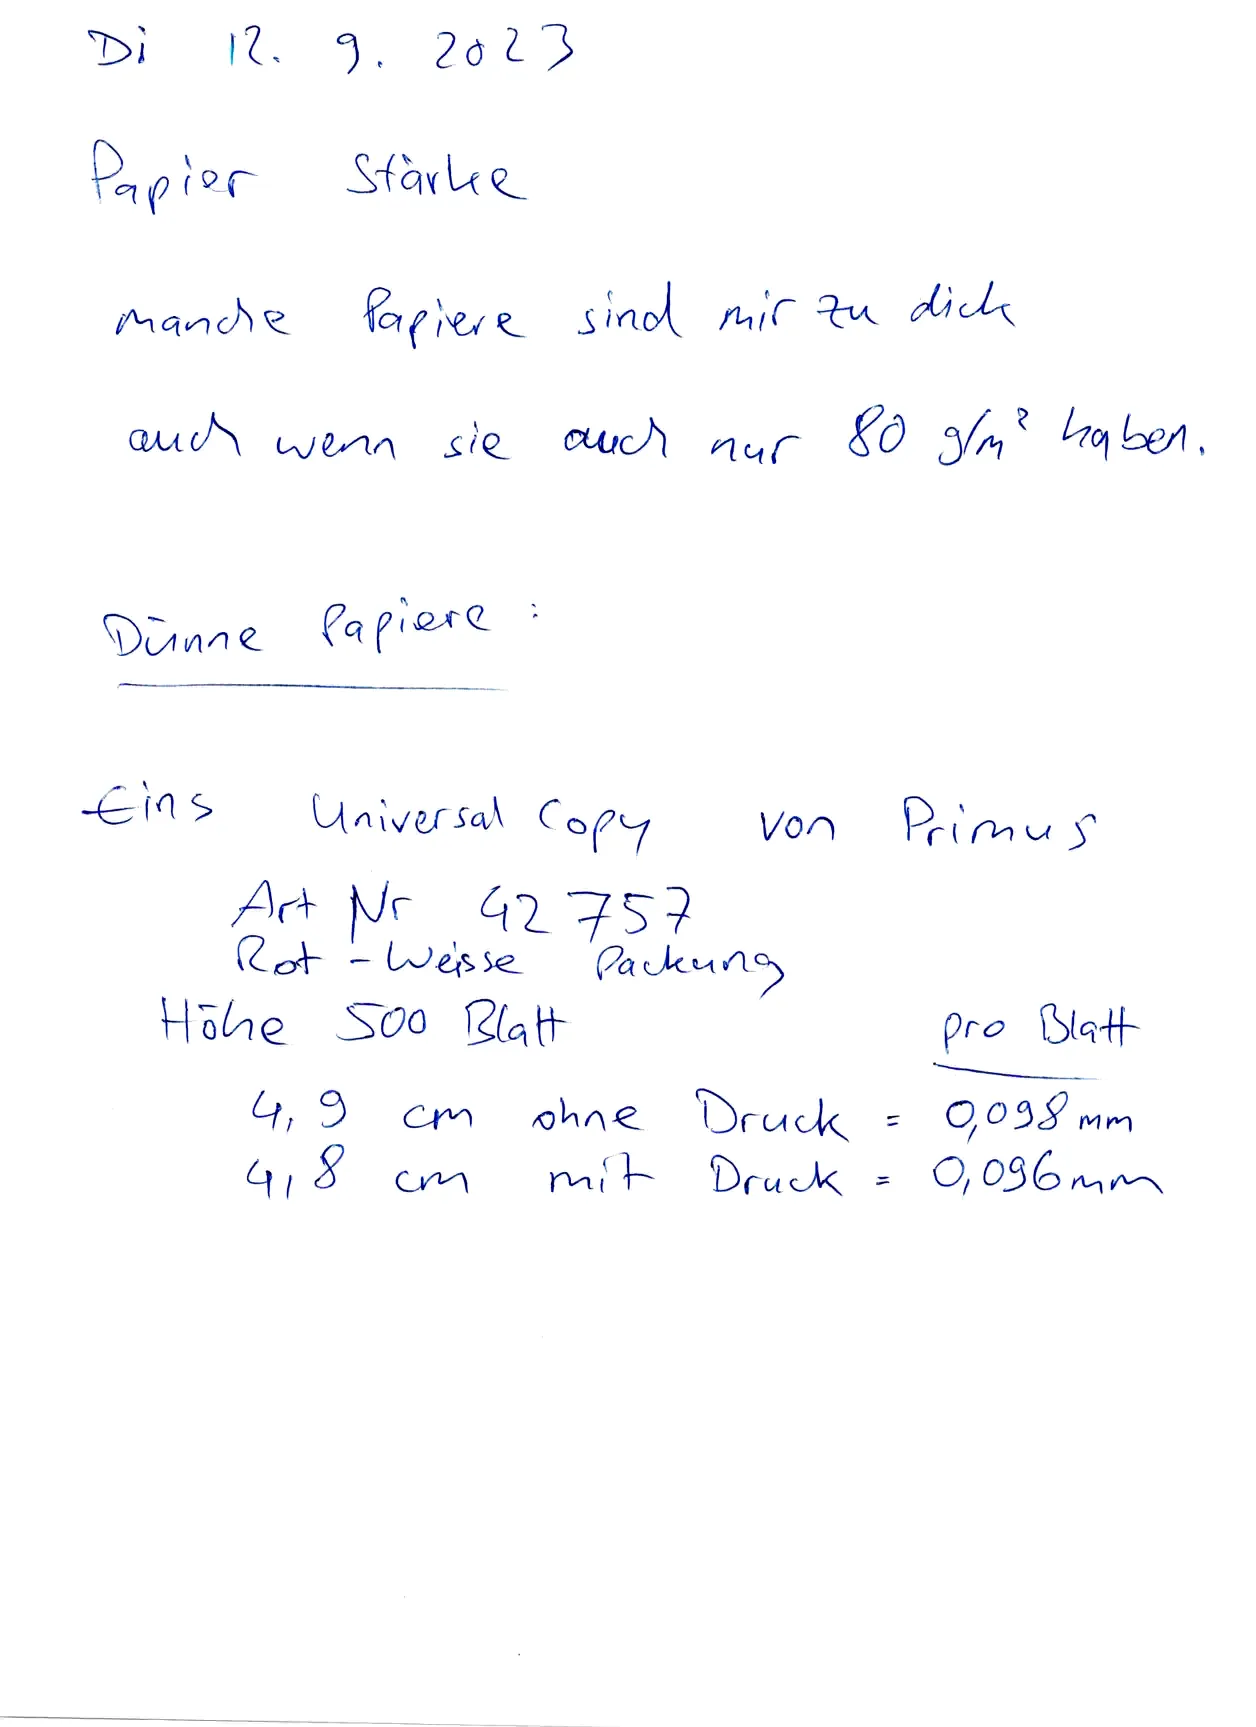 Di 12. 9. 2023
Papier Stärke
manche Papiere sind mir zu dick
auch wenn sie auch nur 80 g/m² haben.
Dünne Papiere :
Eins Universal Copy von Primus
Art Nr 42757
Rot - Weisse Packung
Höhe 500 Blatt pro Blatt
4,9 cm ohne Druck = 0,098 mm
4,8 cm mit Druck = 0,096 mm